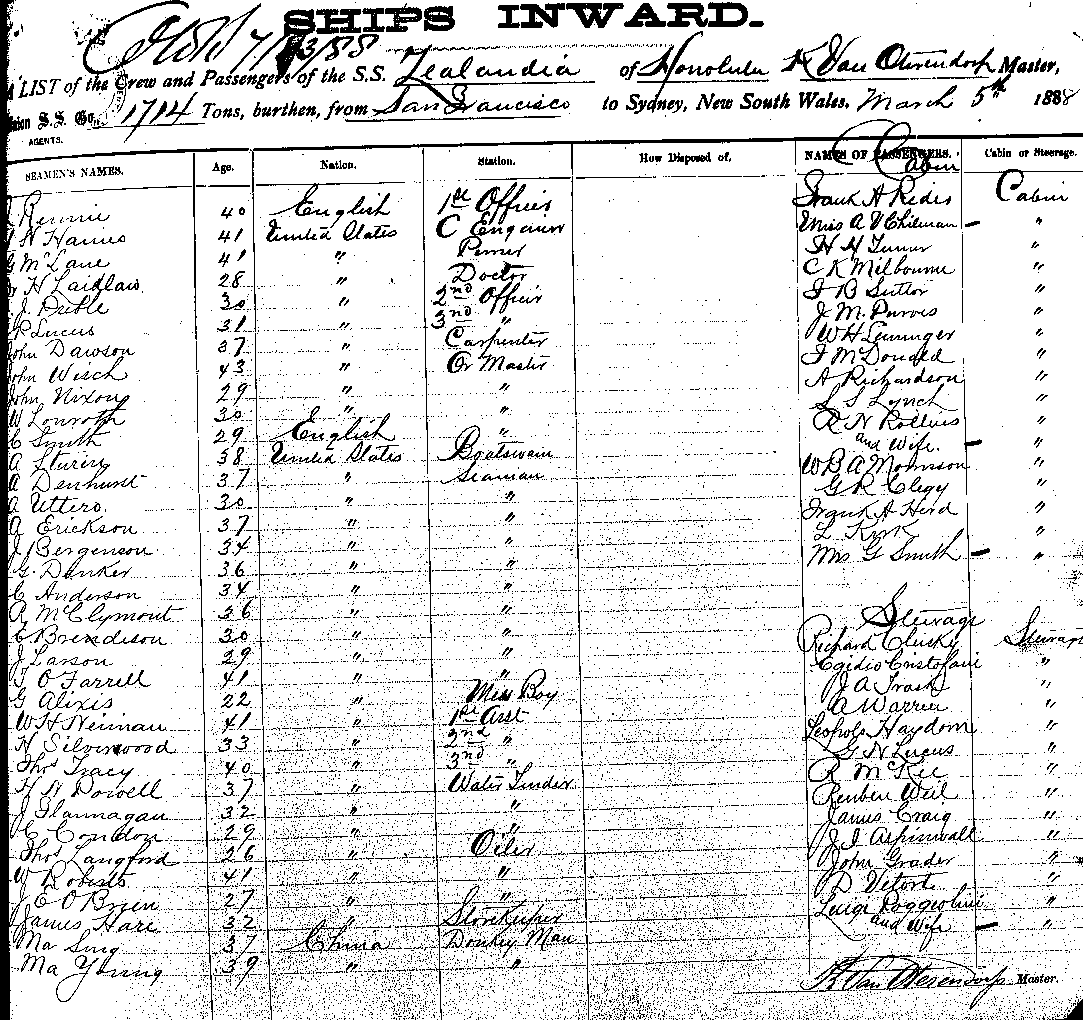 SHIPS INWARD.
7/3/88
LIST of the Crew and Passengers of the S.S. Zealandia of Honolulu Master,
S.S. Co. 1714 Tons, burthen, from San Francisco to Sydney, New South Wales, March 5th 1888
AGENTS.
SEAMEN'S NAMES. Age. Nation. Station. How Disposed of, NAMES OF PASSENGERS. Cabin or Steerage.
Cabin
Rennie 40 English 1st Officer Frank A Cabin
N Haines 41 United States C Engineer Miss A V Chilman — "
McLane 41 " Purser H H Turner "
H Laidlaw 28 " Doctor C K Milbourne "
J. 30 " 2nd Officer B Suttor "
P Lucus 31 " 3rd " J M. Purves "
John Dawson 37 " Carpenter W H "
John Wisch 43 " Qr Master McDonald "
John Nixon 29 " " A Richardson "
W 30 " " S Lynch "
C Smith 29 English " R N Rollins
and Wife. — "
A 38 United States Boatswain W B A Morrison "
A Denhurst 37 " Seaman G R Clegy "
A Uttero 30 " " Frank A Hird "
A Erickson 37 " " L Kirk "
J Bergenson 34 " " Mrs G Smith — "
G. Danker 36 " "
C Anderson 34 " "
R McClymont 36 " " Steerage
C Brendison 30 " " Richard Steerage
J Larson 29 " " Egidio Cristofani "
T O'Farrell 41 " " J A Trask "
G Alixis 22 " Mess Boy A Warren "
W H Neiman 41 " 1st Asst Haydom "
H Silverwood 33 " 2nd " G N Lucus "
Thos Tracy 40 " 3rd " R McKee "
N Dowell 37 " Water Tender Reuben Weil "
J Flannagan 32 " " James Craig "
C Condon 29 " " J I Aspinwall "
Thos Langford 26 " Oiler John Grader "
W Roberts 41 " " "
J C O'Brien 27 " " Luigi
James Hare 32 " Storekeeper and Wife — "
Ma Sing 37 China Donkey Man
Ma Young 39 " "
Master.